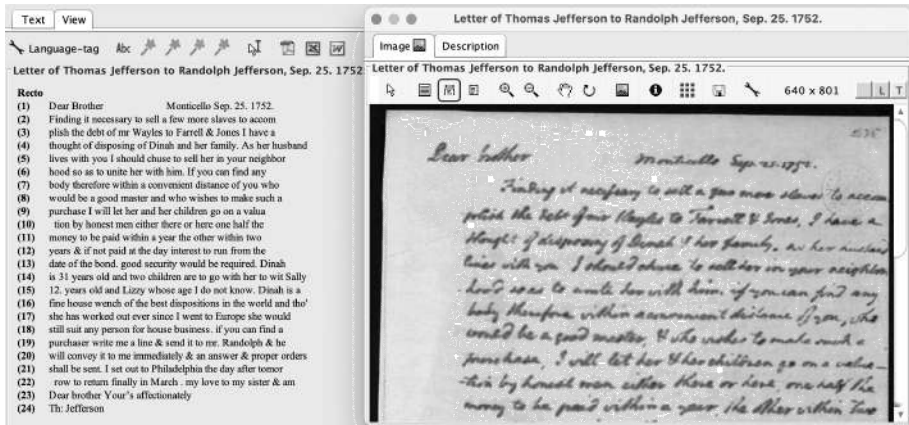 Text View
Language-tag Abc
Letter of Thomas Jefferson to Randolph Jefferson, Sep. 25. 1752
Recto
(1) Dear Brother Monticello Sep. 25. 1752.
(2) Finding it necessary to sell a few more slaves to accom
(3) plish the debt of mr Wayles to Farrell & Jones I have a
(4) thought of disposing of Dinah and her family. As her husband
(5) lives with you I should chuse to sell her in your neighbor
(6) hood so as to unite her with him. If you can find any
(7) body therefore within a convenient distance of you who
(8) would be a good master and who wishes to make such a
(9) purchase I will let her and her children go on a valua
(10) tion by honest men either there or here one half the
(11) money to be paid within a year the other within two
(12) years & if not paid at the day interest to run from the
(13) date of the bond. good security would be required. Dinah
(14) is 31 years old and two children are to go with her to wit Sally
(15) 12. years old and Lizzy whose age I do not know. Dinah is a
(16) fine house wench of the best dispositions in the world and tho'
(17) she has worked out ever since I went to Europe she would
(18) still suit any person for house business. if you can find a
(19) purchaser write me a line & send it to mr. Randolph & he
(20) will convey it to me immediately & an answer & proper orders
(21) shall be sent. I set out to Philadelphia the day after tomor
(22) row to return finally in March . my love to my sister & am
(23) Dear brother Your's affectionately
(24) Th: Jefferson
Letter of Thomas Jefferson to Randolph Jefferson, Sep. 25. 1752.
Image Description
Letter of Thomas Jefferson to Randolph Jefferson, Sep. 25. 1752.
640 x 801 L T
Dear brother Monticello Sep. 25. 1752.
Finding it necessary to sell a few more slaves to accom
plish the debt of mr Wayles to Farrell & Jones, I have a
thought of disposing of Dinah & her family. as her husband
lives with you I should chuse to sell her in your neighbor
hood so as to unite her with him. if you can find any
body therefore within a convenient distance of you, who
would be a good master, & who wishes to make such a
purchase, I will let her & her children go on a valua-
-tion by honest men either there or here, one half the
money to be paid within a year, the other within two